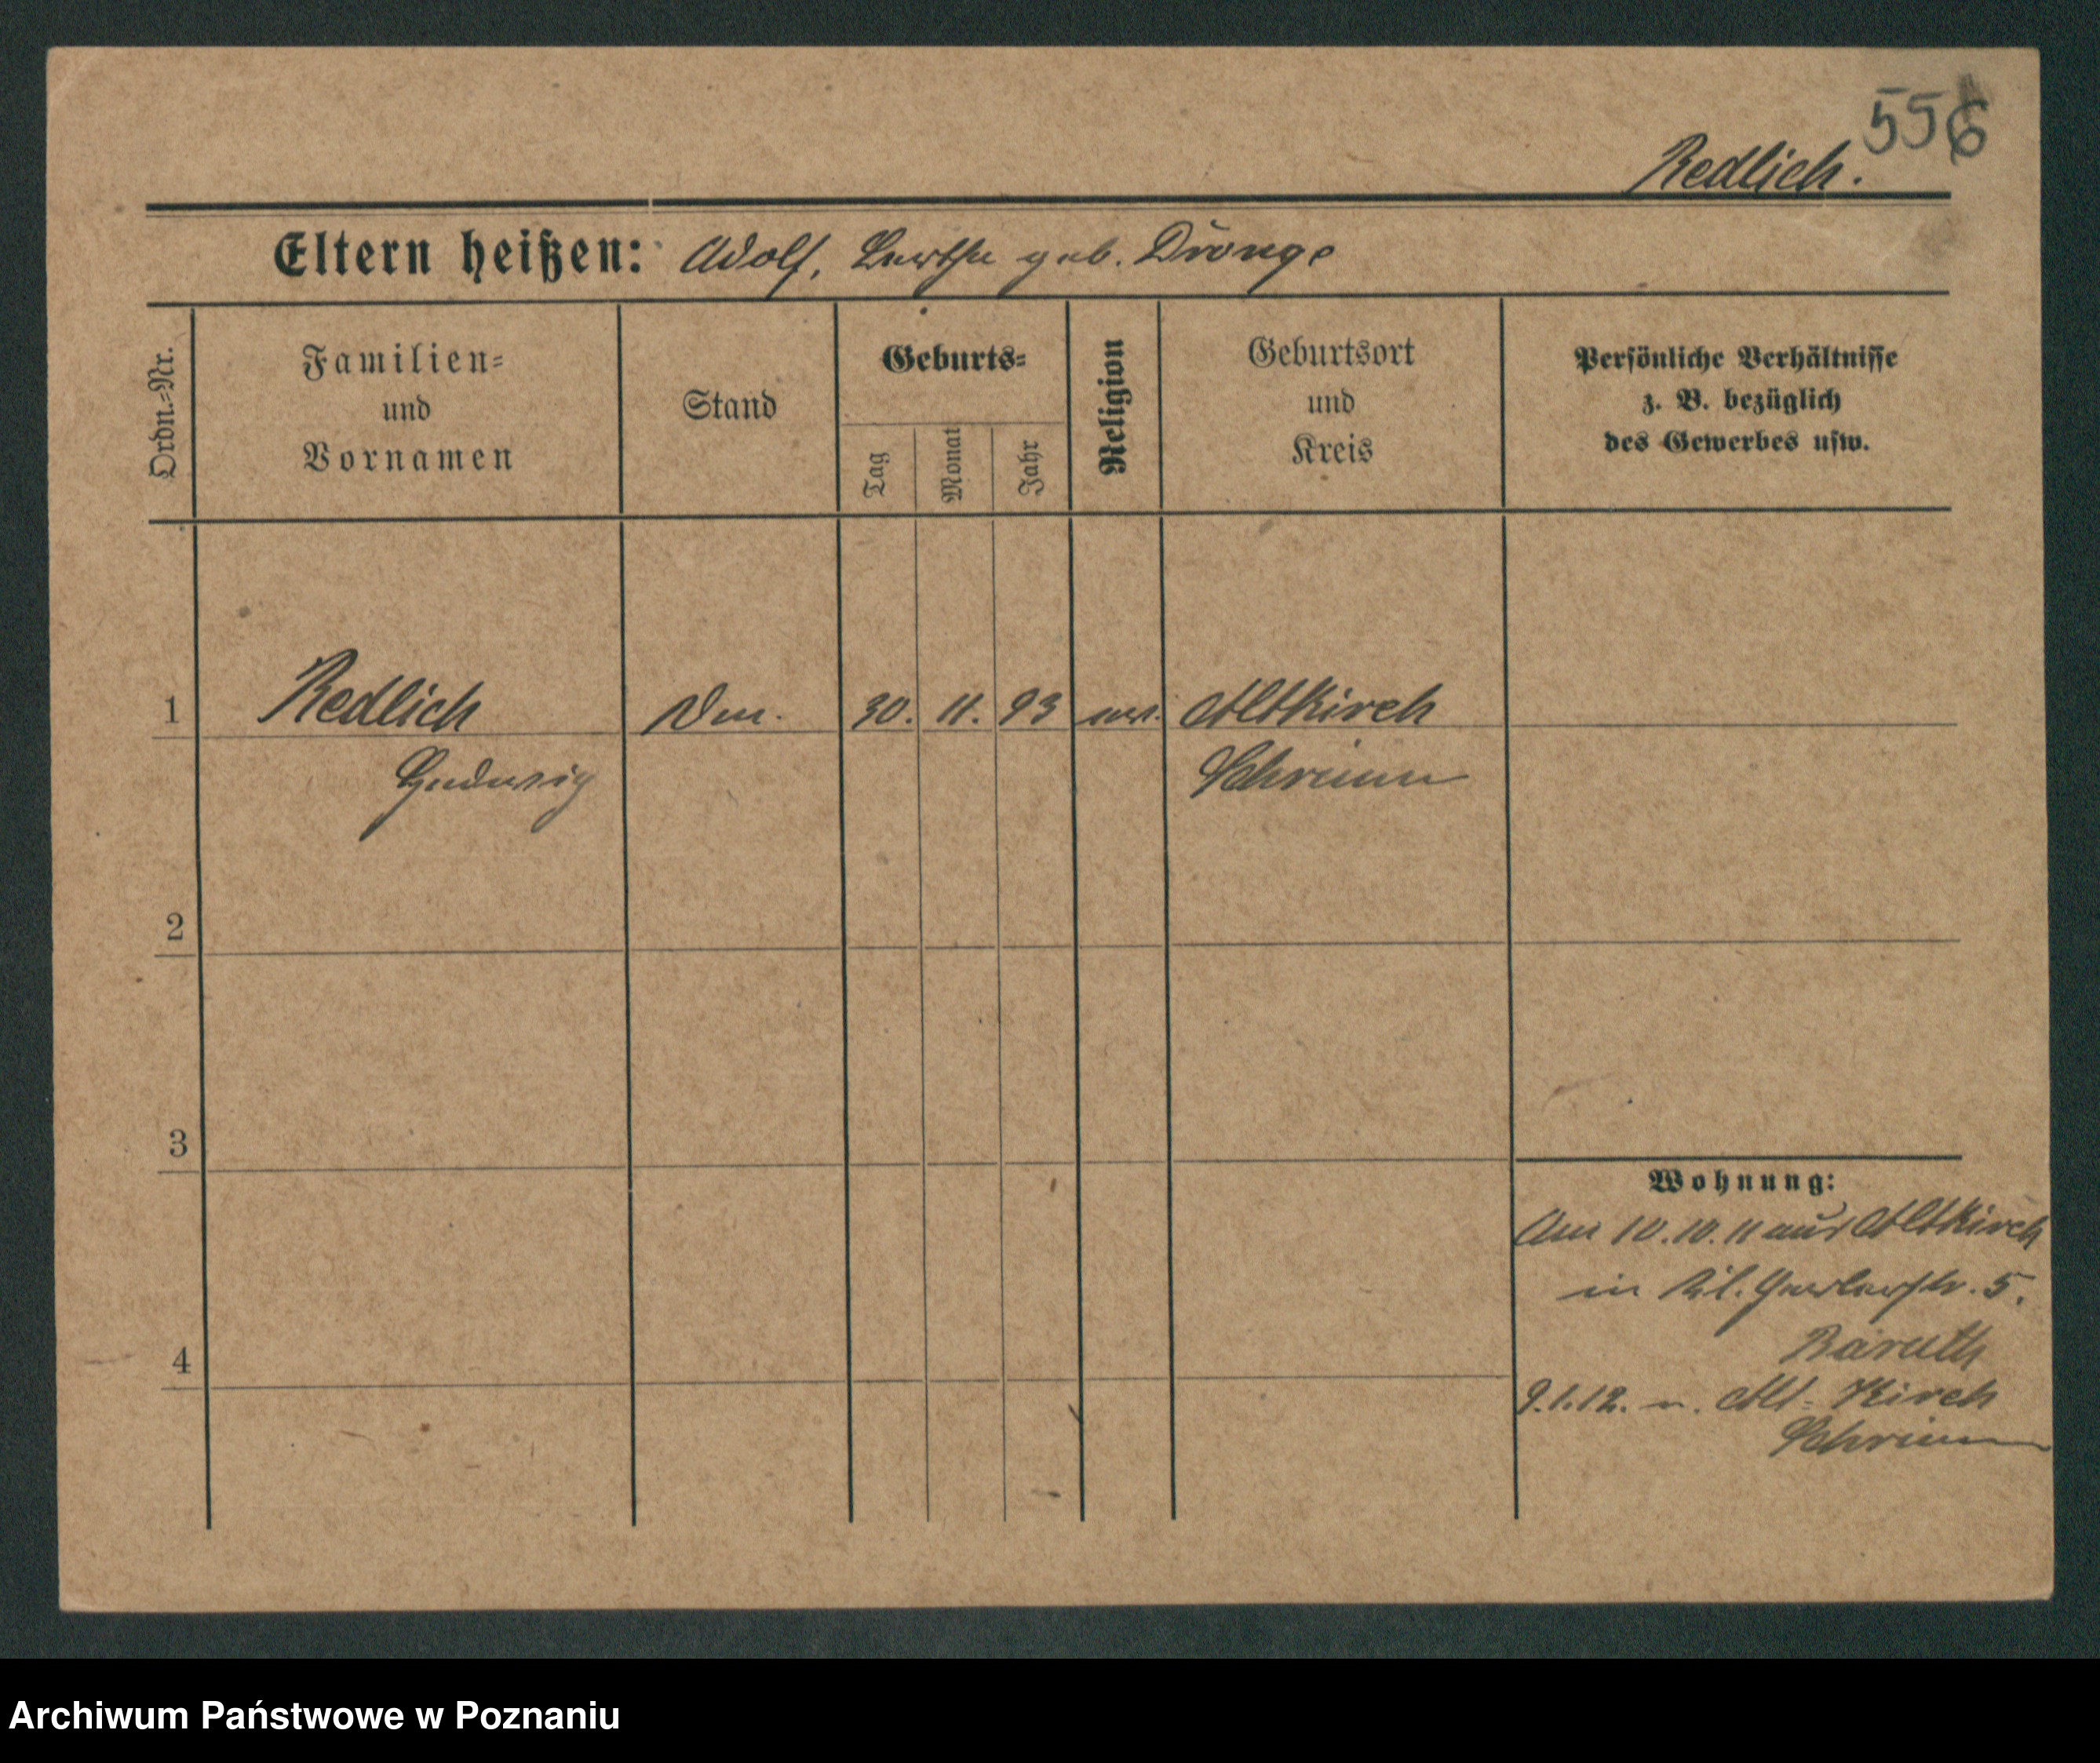 556
Redlich.
Eltern heißen: Adolf, Bertha geb. Dronge
Ordn.-Nr.
Familien-
und
Vornamen
Stand
Geburts-
Tag
Monat
Jahr
Religion
Geburtsort
und
Kreis
Persönliche Verhältnisse
z. B. bezüglich
des Gewerbes usw.
1 Redlich 30. 11. 93 Altkirch
Ludwig Schrimm
2
3
4
Wohnung:
Am 10.10.11 aus Altkirch
in 5.
Baruth
9.1.12. n. Alt-Kirch
Schrimm
Archiwum Państwowe w Poznaniu